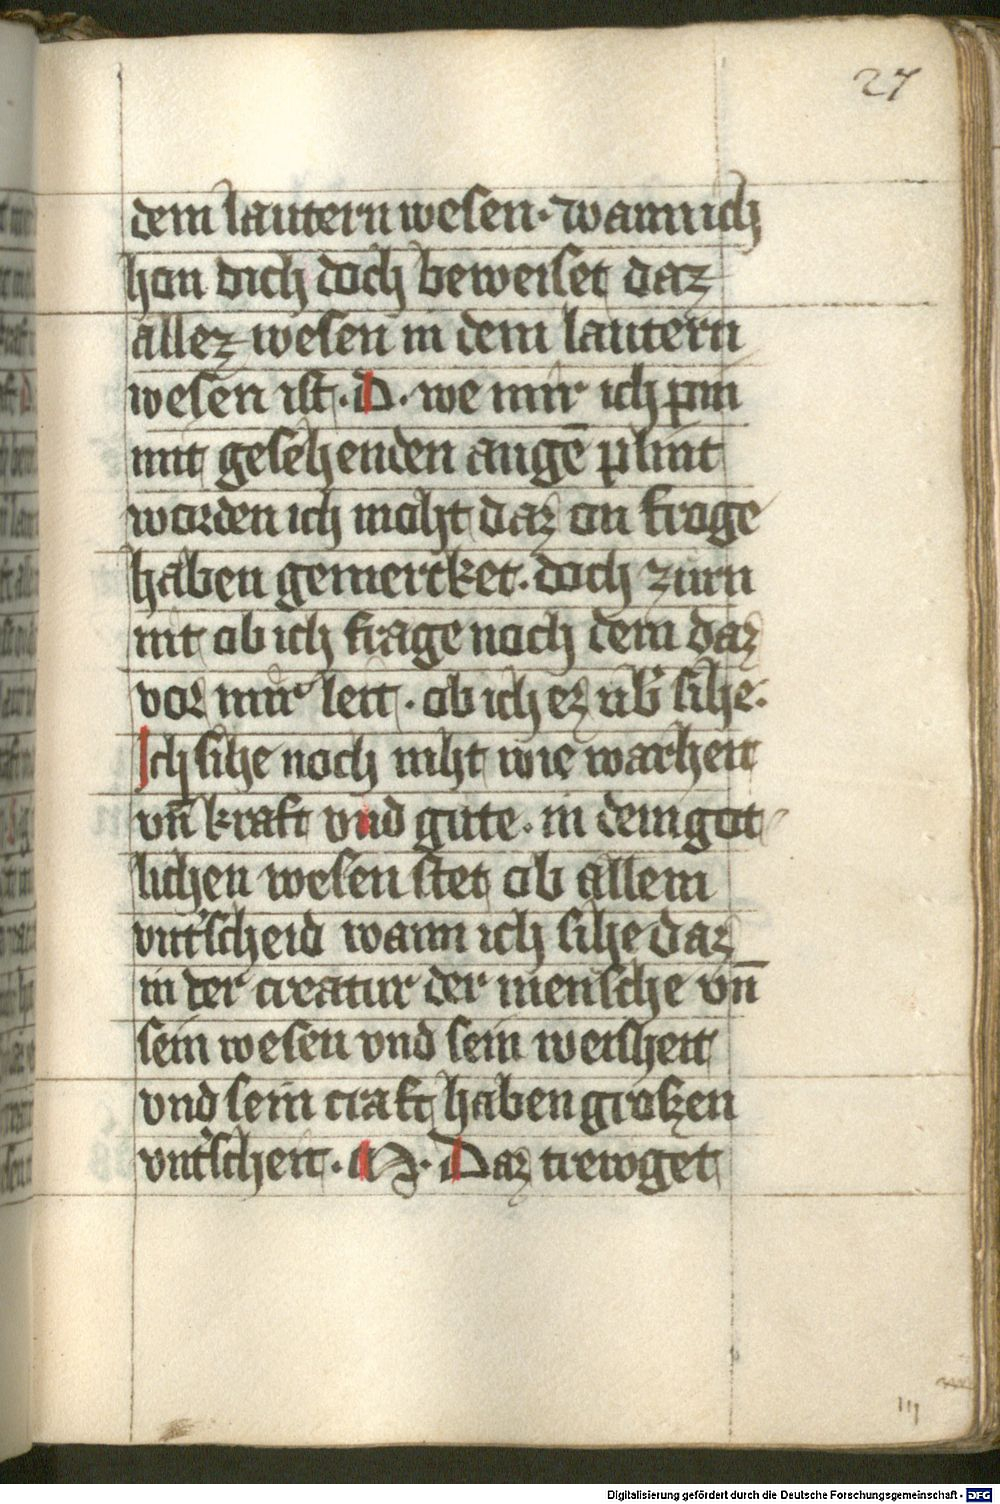 27
dem lautern wesen · wann ich
hon dich doch beweiset daz
allez wesen in dem lautern
wesen ist · D · we mir ich pin
mit gesehenden augē plint
worden ich moht daz on froge
haben gemercket · doch zürn
nit ob ich frage noch dem daz
vor mir leit · ob ich ez ub̾ sihe ·
Ich sihe noch niht wie warheit
vn̄ kraft vnd gute · in dem got
lichen wesen stet ob allem
vnt̾scheid wann ich sihe daz
in der creatur der mensche vn̄
sein wesen vnd sein weisheit
vnd sein craft haben grozen
vnt̾scheit · M · Daz trewget
iij
Digitalisierung gefördert durch die Deutsche Forschungsgemeinschaft - DFG